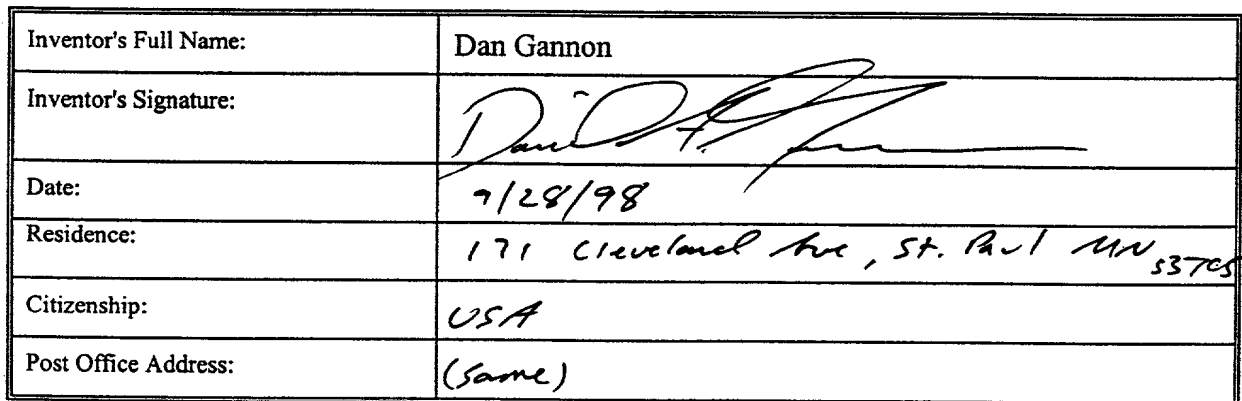 Inventor's Full Name: Dan Gannon
Inventor's Signature:
Date: 9/28/98
Residence: 171 Cleveland Ave, St. Paul MN
Citizenship: USA
Post Office Address: (same)